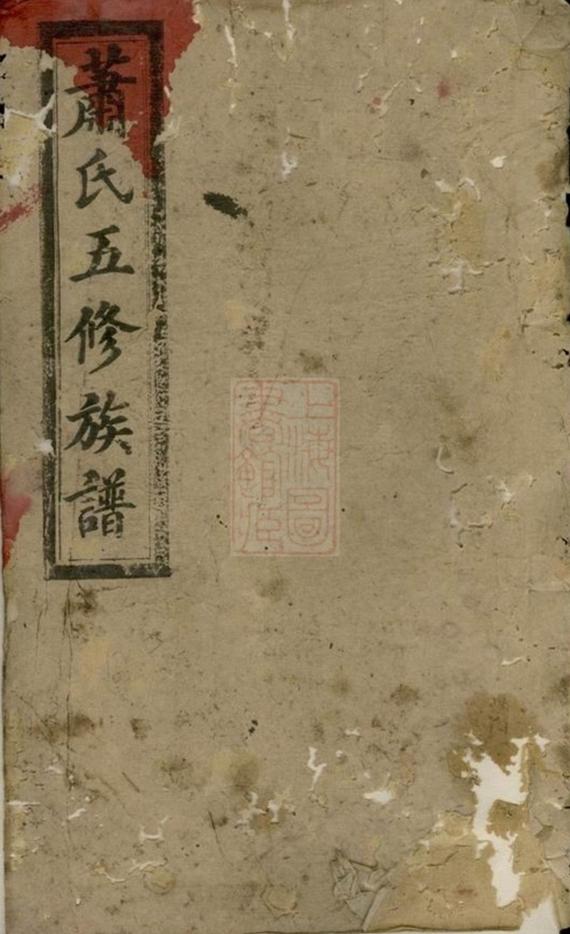 蕭氏五修族譜
上海圖
書館藏